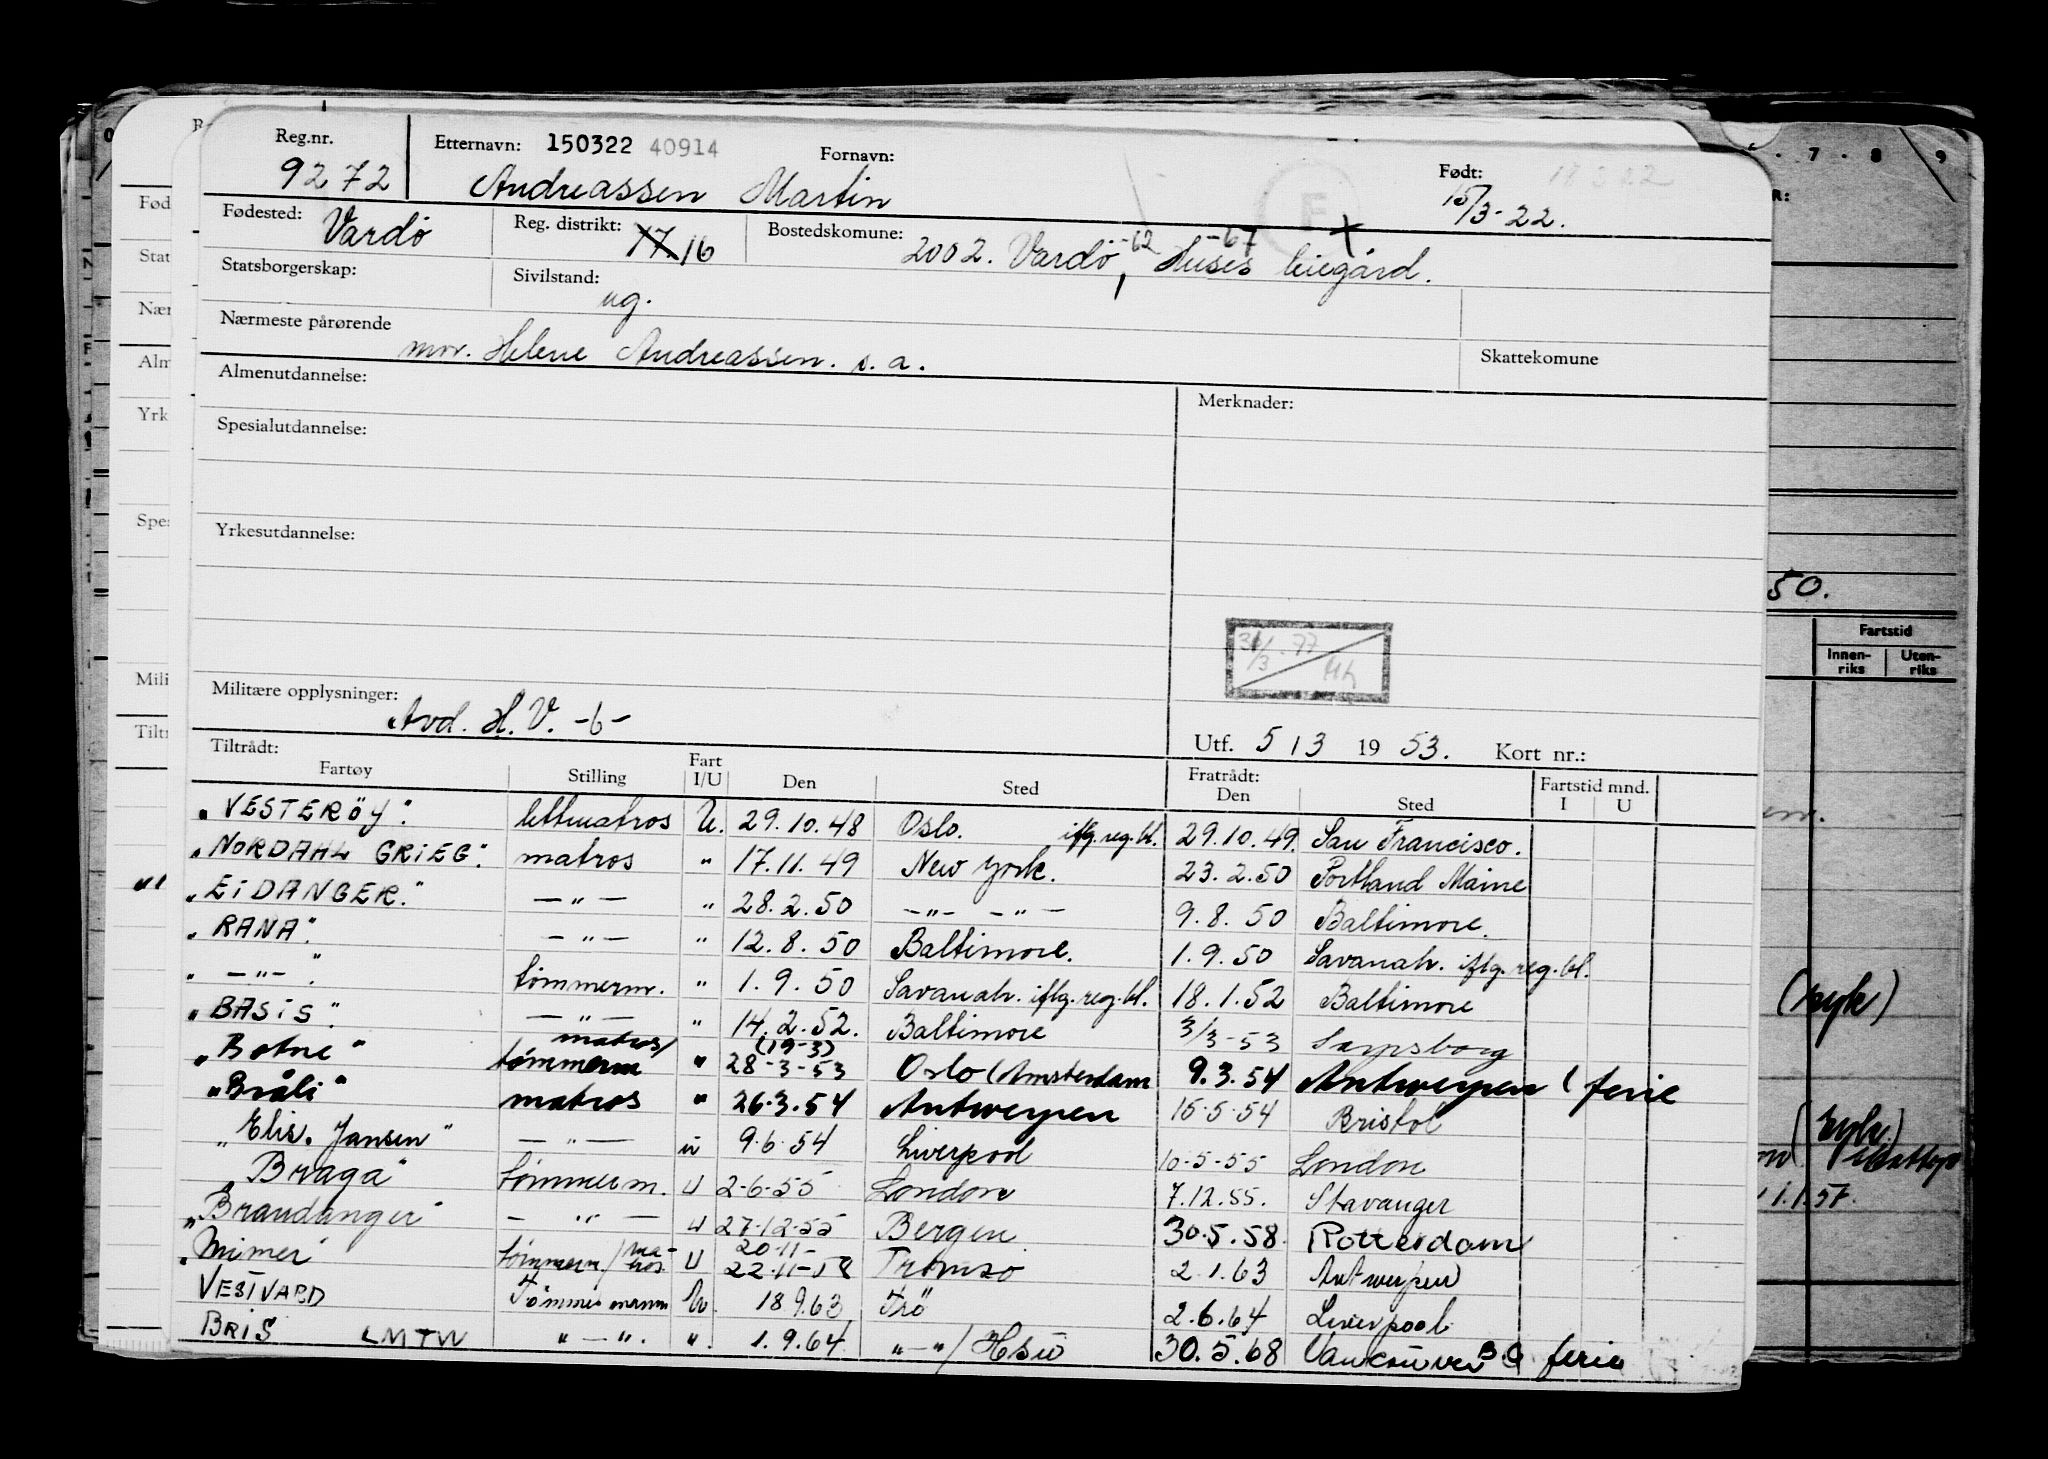 Reg.nr. Etternavn: 150322 40914 Fornavn: Født:
9272 Andreassen Martin 15/3-22.
Fødested: Vardö Reg. distrikt: 17 16 Bostedskomune: 2002. Vardö, -62 Huses leiegård. -67
Statsborgerskap: Sivilstand: ug.
Nærmeste pårørende
mor. Helene Andreassen. s. a. Skattekomune
Almenutdannelse: Merknader:
Spesialutdannelse:
Yrkesutdannelse:
31/3.77
Militære opplysninger: Avd. H. V. -6-
Utf. 5/3 1953. Kort nr.:
Tiltrådt: Fratrådt: Fartstid mnd.
Fartøy Stilling Fart I/U Den Sted Den Sted I U
"VESTERÖY". lettmatros U. 29.10.48 Oslo. iflg.reg.bl. 29.10.49. San Francisco.
"NORDAHL GRIEG". matros " 17.11.49 New York. 23.2.50 Portland Maine
"EIDANGER." —"— " 28.2.50 —"— —"— 9.8.50 Baltimore.
"RANA". —"— " 12.8.50 Baltimore. 1.9.50 Savanah. iflg.reg.bl.
" —"— ". tömmerm. " 1.9.50 Savanah. iflg.reg.bl. 18.1.52 Baltimore
"BASIS". —"— " 14.2.52. Baltimore 3/3-53 Sarpsborg
"Botne" matros/tømmerm " (19-3) 28-3-53 Oslo (Amsterdam 9.3.54 Antwerpen (ferie
"Bråli" matros " 26.3.54 Antwerpen 15.5.54 Bristol
"Elis. Jansen" —"— u 9.6.54 Liverpool 10-5-55 London
"Braga" tömmerm. U 2-6-55 London 7.12.55. Stavanger
"Braudanger" —"— u 27-12-55 Bergen 30.5.58. Rotterdam
"Mimer" tömmerm/matros. U 20-11- 22-11-58 Tromsø 2.1.63 Antwerpen
VESTVARD Tömmermann U. 18 9.63 Trö 2.6.64 Liverpool
BRIS LMTW "—". ". 1.9.64 "—"/Hsiö 30.5.68 Vancouver BC ferie
Fød
Stat
Nær
Alm
Yrk
Spe
Mili
Tiltr
7 8 9
R:
50.
Fartstid
Innen-riks Uten-riks
(syk)
1.1.57.